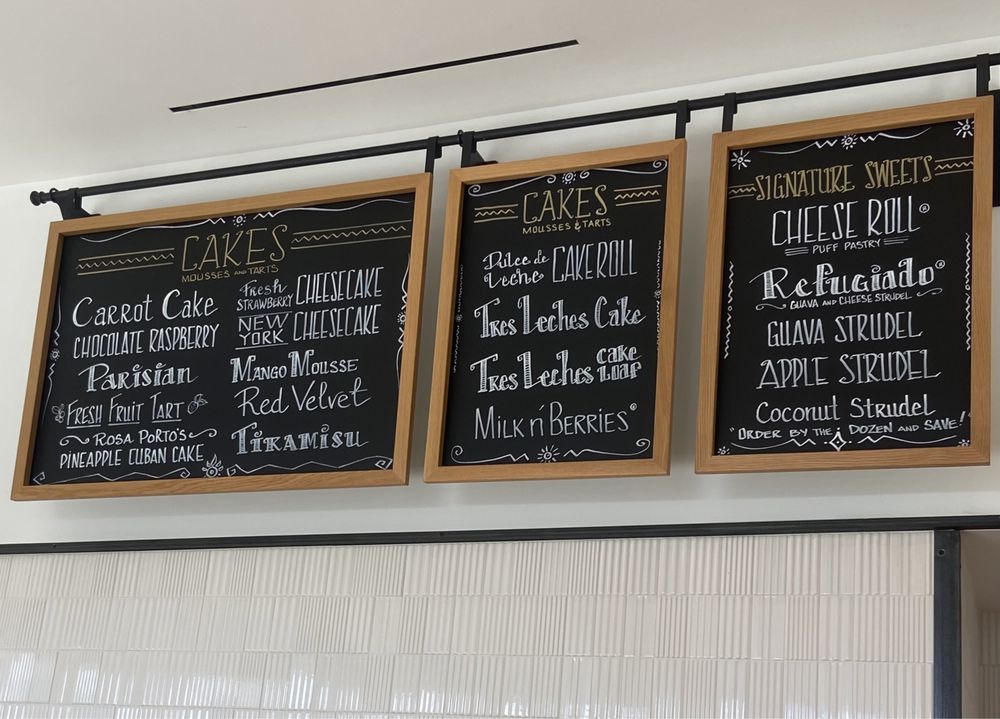 CAKES
MOUSSES AND TARTS
Carrot Cake
CHOCOLATE RASPBERRY
Parisian
FRESH FRUIT TART
ROSA PORTO'S
PINEAPPLE CUBAN CAKE
Fresh
STRAWBERRY CHEESECAKE
NEW
YORK CHEESECAKE
MANGO MOUSSE
Red Velvet
TIRAMISU
CAKES
MOUSSES & TARTS
Dulce de
Leche CAKE ROLL
Tres Leches Cake
Tres Leches CAKE
LOAF
MILK n' BERRIES®
SIGNATURE SWEETS
CHEESE ROLL®
PUFF PASTRY
Refugiado®
GUAVA AND CHEESE STRUDEL
GUAVA STRUDEL
APPLE STRUDEL
Coconut Strudel
"ORDER BY THE DOZEN AND SAVE!"